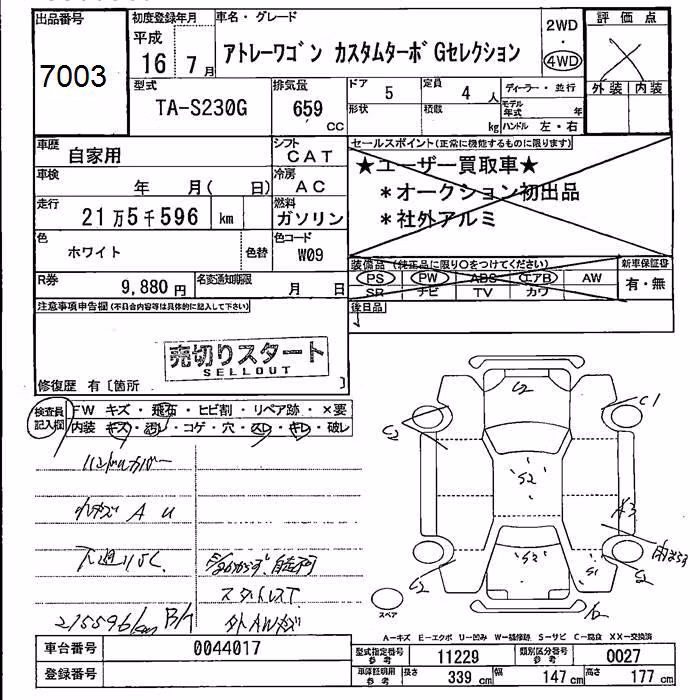 出品番号
7003
初度登録年月
平成
16 7月
車名・グレード
アトレーワゴン カスタムターボGセレクション
2WD
・
4WD
評価点
外装 内装
型式
TA-S230G
排気量
659
CC
ドア
5
定員
4 人
形状
積載
kg
ディーラー・並行
モデル年式 年
ハンドル 左・右
車歴
自家用
シフト
CAT
車検
年 月( 日)
冷房
AC
走行
21万5千596 km
燃料
ガソリン
色
ホワイト
色替
色コード
W09
R券
9,880円
名変通知期限
月 日
セールスポイント(正常に機能するものに限ります)
★ユーザー買取車★
*オークション初出品
*社外アルミ
装備品(純正品に限り○をつけてください)
PS PW ABS エアB AW
SR ナビ TV カワ
新車保証書
有・無
後日品
注意事項申告欄(不具合内容等は具体的に記入して下さい)
売切りスタート
SELLOUT
修復歴 有〔箇所 〕
検査員記入欄
FW キズ・飛石・ヒビ割・リペア跡・×要
内装 キズ・汚れ・コゲ・穴・スレ・キレ・破レ
ハンドルカバー
A U
下廻りSC
スタットレスT
215596km
外AWキズ
S2
C1
S2
S2
A3
S2
S2
S1
S2
スペア
A-キズ E-エクボ U-凹み W-補修跡 S-サビ C-腐食 XX-交換済
車台番号
0044017
登録番号
型式指定番号
参考
11229
類別区分番号
参考
0027
車庫証明用
参考
長さ
339 cm
幅
147 cm
高さ
177 cm